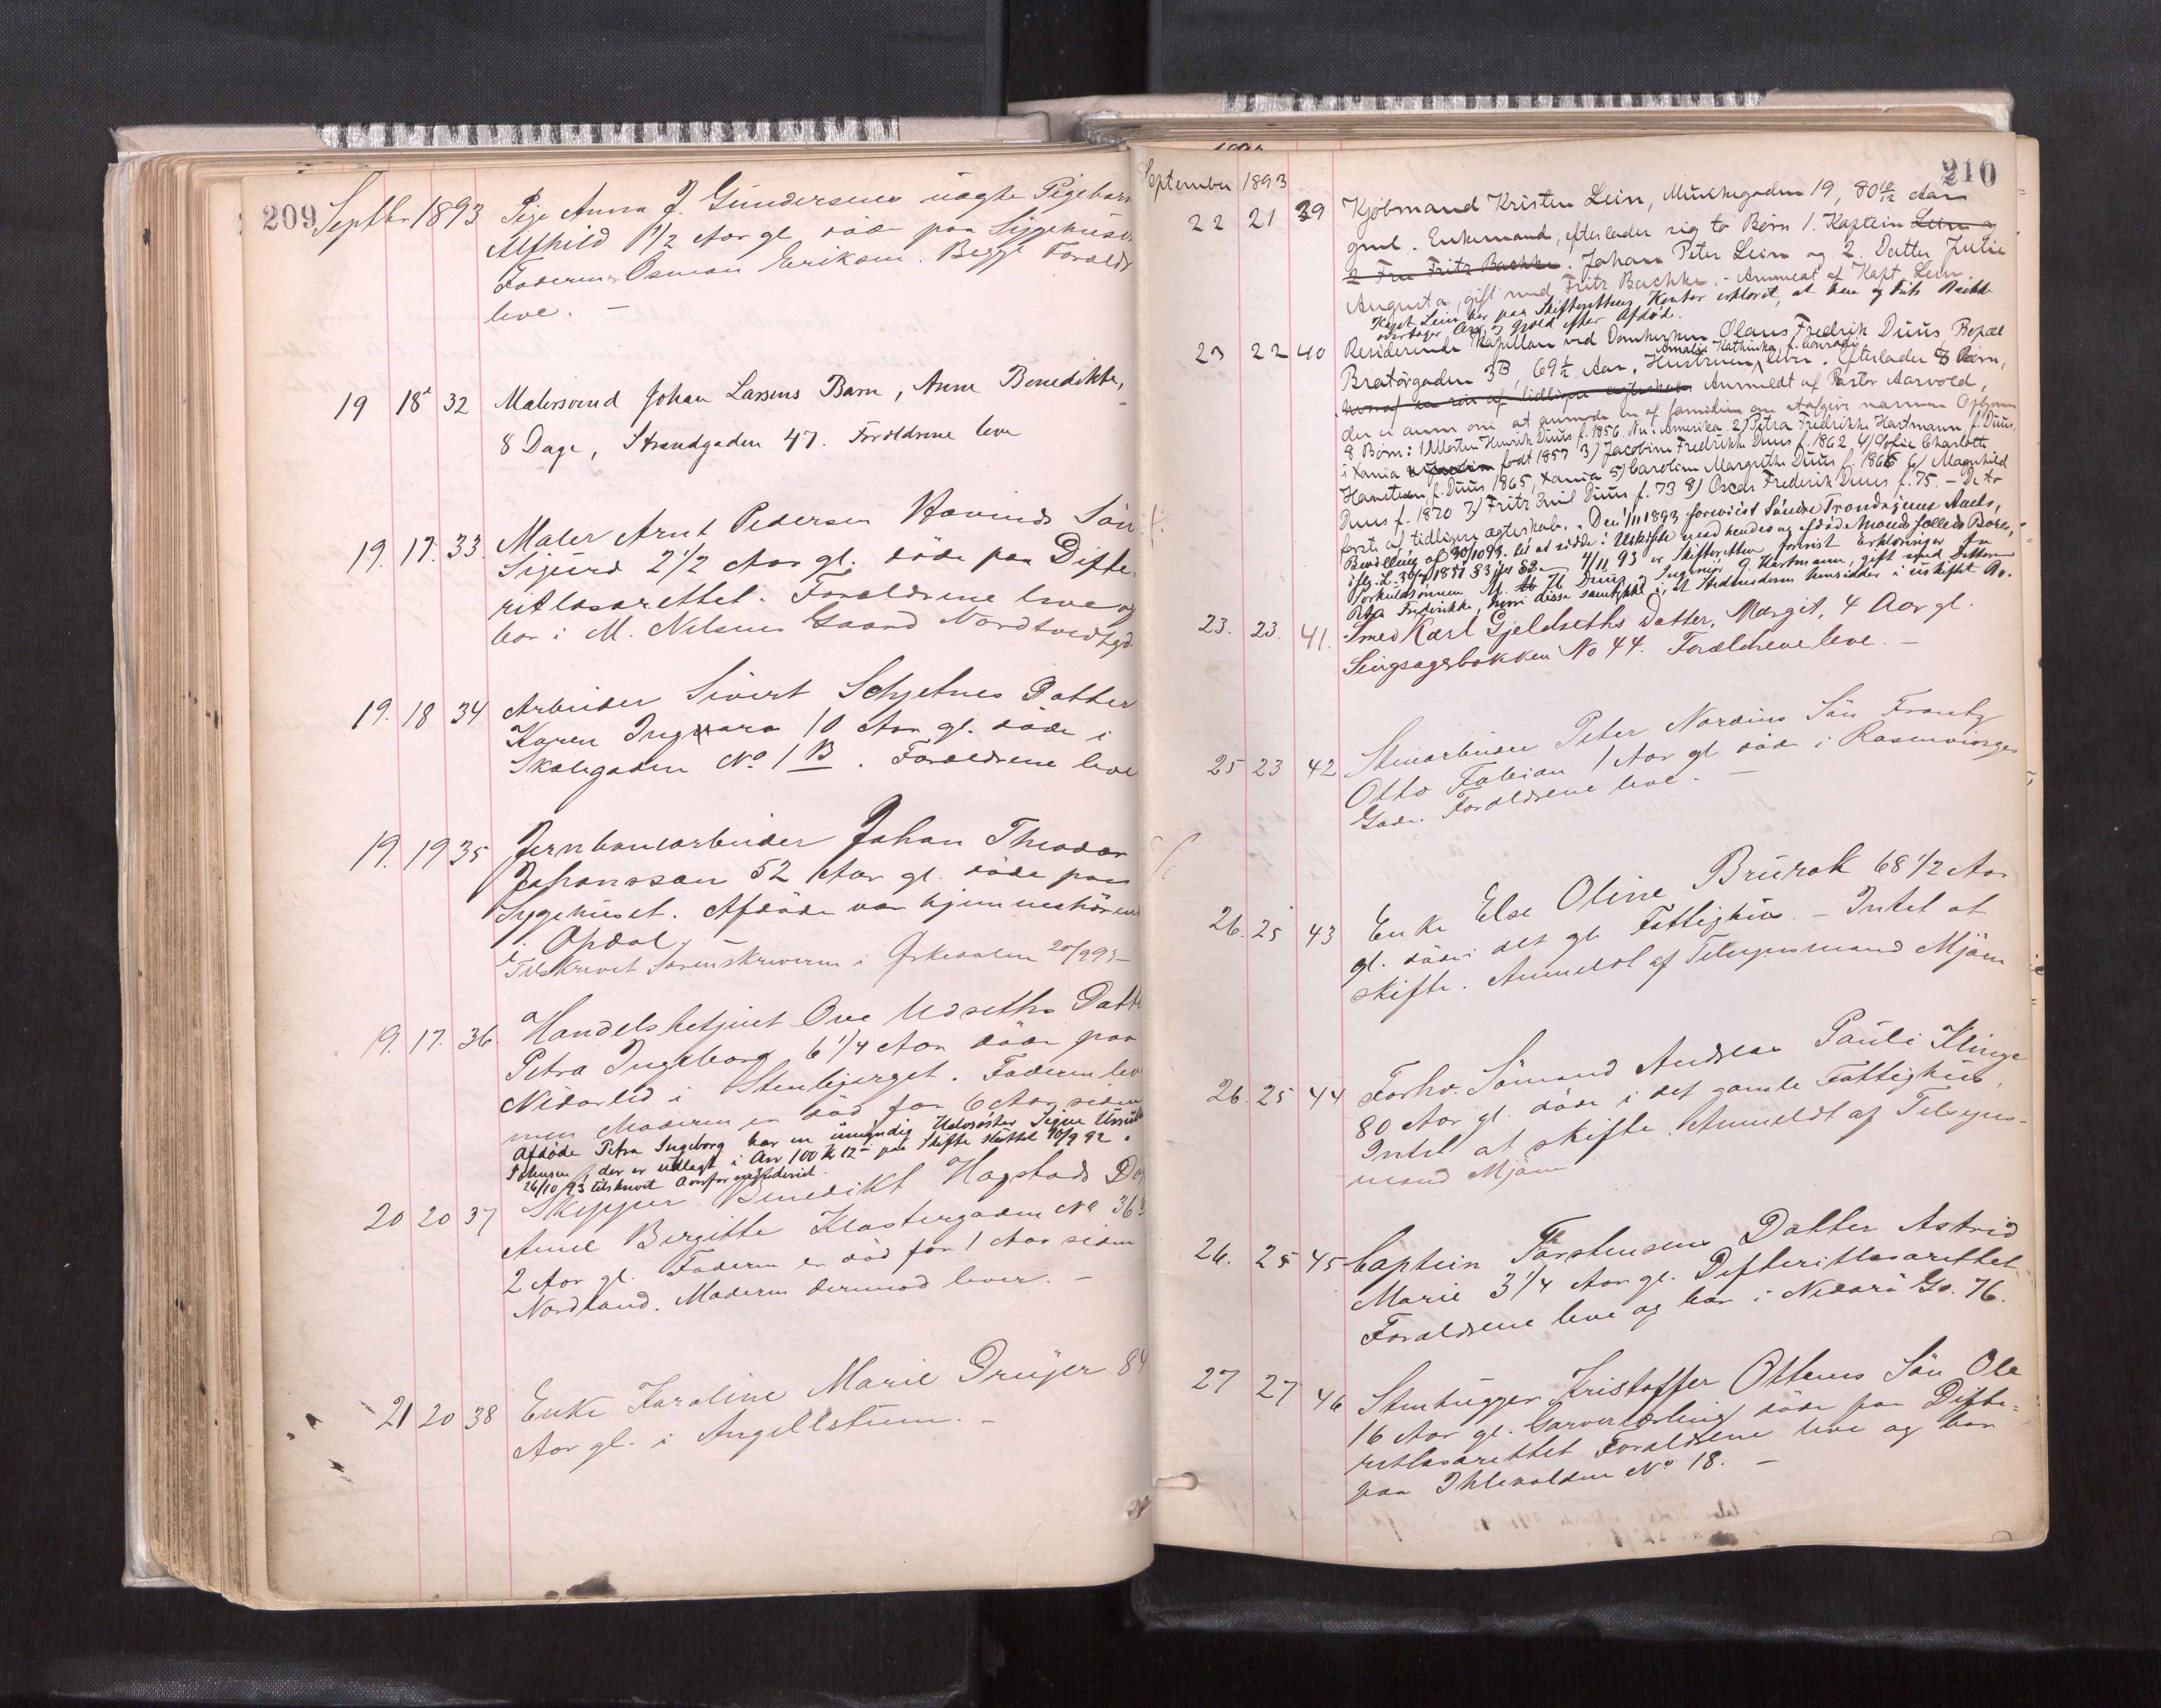 209 Septbr 1893 Pige Anna J. Gundersens uægte Pigebarn
Alfhild 1/2 Aar gl. döde paa Sygehuset
Faderen Osman Eriksen. Begge Foræld
leve. —
19 18 32 Malersvend Johan Larsens Barn, Anne Benedikte,
8 Dage, Strandgaden 47. Forældrene leve
19. 17. 33. Maler Arnt Pedersen Havinds Sön
Sigurd 2 1/2 Aar gl. döde paa Difte-
ritlasarettet. Forældrene leve og
bor i M. Nilsens Gaard Nordtvedtgd.
19. 18 34 Arbeider Sivert Schjetnes Datter
Karen Ingvara 10 Aar gl. döde i
Skolegaden No 1 B. Forældrene leve
19. 19 35 Jernbanearbeider Johan Theodor
Johansson 52 Aar gl. döde paa
Sygehuset. Afdöde var hjemmehörende
i Opdal.
Tilskrevet Sorenskriveren i Orkedalen 20/9 93 —
19. 17. 36. Handelsbetjent Ove Udseths Datter
Petra Ingeborg 6 1/4 Aar döde paa
Nidarlid i Stenbjerget. Faderen lev
men Moderen er död for 6 Aar siden
Afdöde Petra Ingeborg har en umyndig Halvsöster Signe
Johnsen, der er udlagt i Arv 100 Kr 12 — paa Skifte sluttet 10/9 92.
26/10 93 tilskrevet
20 20 37 Skipper Benedikt Hagstads D
Anne Birgitte Klostergaden No 36 b
2 Aar gl. Faderen er död for 1 Aar siden
Nordland. Moderen derimod lever. —
21 20 38 Enke Karoline Marie Drüjer 84
Aar gl. i Angellstuen. —
210
September 1893
22 21 39 Kjöbmand Kristen Lein, Munkegaden 19, 80 10/12 Aar
gml. Enkemand, efterlader sig to Börn 1. Kaptein Lein og
2 Fru Fritz Bachke. Johan Peter Lein og 2. Datter Julie
Augusta, gift med Fritz Bachke. - Anmeldt af Kapt. Lein.
Kapt. Lein har paa Skifterettens Kontor erklæret, at han og Frits Bachke
overtager Arv og Gjæld efter Afdöd.
23 22 40 Residerende Kapellan ved Domkirken Olaus Fredrik Duus, Bopæl
Bratörgaden 3B, 69 1/2 Aar. Hustruen Amalie Kathinka f. Conradi lever. Efterlader 8 Börn,
hvoraf en sön af tidligere ægteskab. Anmeldt af Pastor Aarvold,
der er anm om at anmode en af familien om at afgive nærmere Oplysn
8 Börn: 1) Morten Henrik Duus f. 1856. Nu i Amerika 2) Petra Fredrikke Hartmann f. Duus,
i Xania födt 1857 3) Jacobine Fredrikke Duus f. 1862, 4) Sofie Charlotte
f. Duus 1865, Xania 5) Caroline Margrethe Duus f. 1866 6) Magnhild
Duus f. 1870 7) Fritz Emil Duus f. 73 8) Oscar Frederik Duus f. 75. — De to
förste af tidligere ægteskab. - Den 1/11 1893 forevist Söndre Trondhjems Amts,
Bevilling af 30/10 93 til at sidde i Uskiftet med hendes og afdöde Mands fælleds Boer,
4/11 93 er Skifteretten forevist Erklæringer fra
M. H. Duus og Ingeniör G. Hartmann, gift med Datteren
Petra Fredrikke, hvori disse samtykke i, at Stedmoderen hensidder i uskiftet Bo.
23. 23. 41. Smed Karl Gjeldseths Datter, Margit, 4 Aar gl.
Singsagerbakken No 44. Forældrene leve. —
25 23 42 Stenarbeider Peter Nordins Sön Frantz
Otto Fabian 1 Aar gl. döde i Rosenvinges
Gade. Forældrene leve. —
26. 25 43 Enke Else Oline Brürok 68 1/2 Aar
gl. döde i det gl. Fattighus. — Intet at
skifte. Anmeldt af Tilsynsmand Mjöen
26. 25 44 Forhv. Sömand Andreas Pauli Klinge
80 Aar gl. döde i det gamle Fattighus,
Intet at skifte. Anmeldt af Tilsyns-
mand Mjöen
26. 25 45 Captein Torstensens Datter Astrid
Marie 3 1/4 Aar gl. Difteritlasarettet
Forældrene leve og bor i Nedre Ga. 76.
27 27 46 Stenhugger Kristoffer Ottems Sön Ole
16 Aar gl. Garverlærling döde paa Difte-
ritlasarettet Forældrene leve og bor
paa Ihlevolden No 18. —